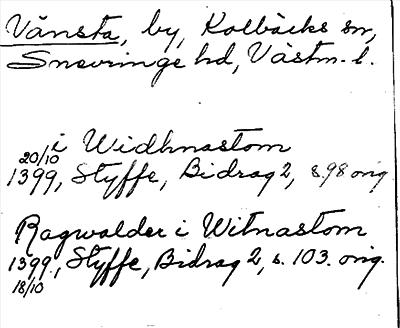 Vänsta, by, Kolbäcks sn,
Snevringe hd, Västm. l.
i Widhnastom
20/10
1399, Styffe, Bidrag 2, s. 98 orig
Ragwalder i Witnastom
1399, Styffe, Bidrag 2, s. 103. orig.
18/10